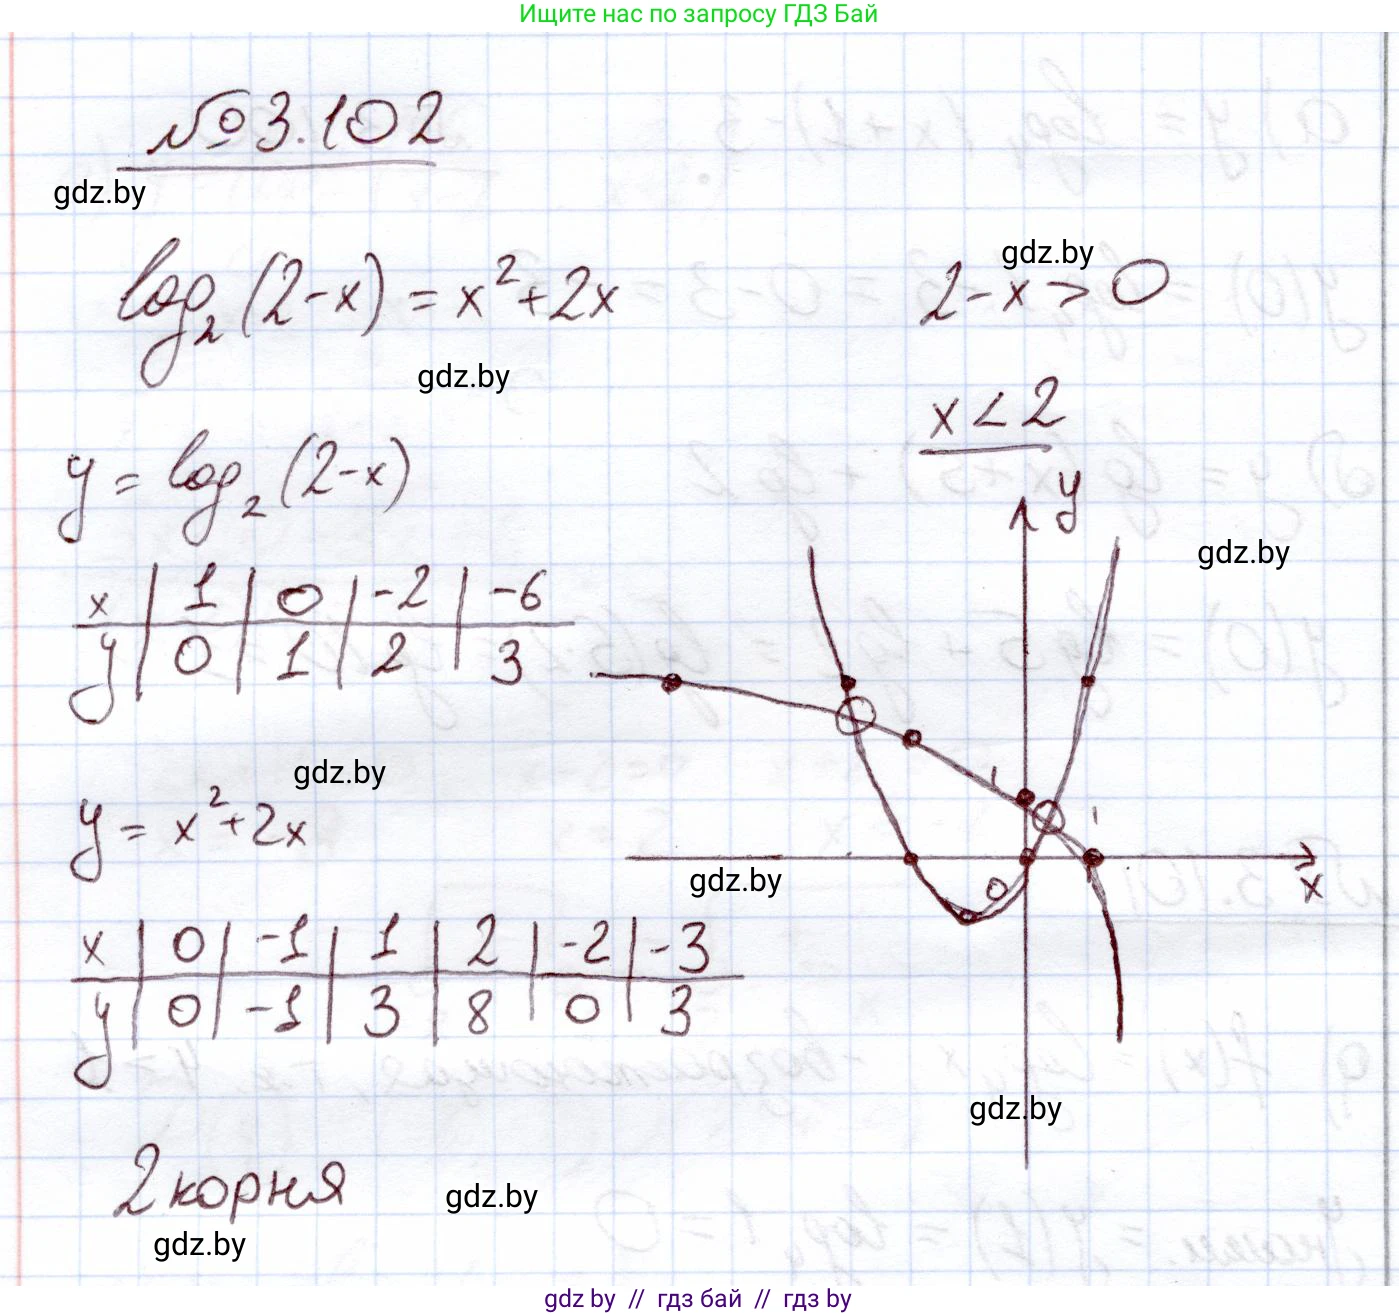 Ищите нас по запросу ГДЗ Бай
№3.102
gdz.by
log₂(2-x) = x²+2x
2-x > 0
gdz.by
gdz.by
x < 2
y = log₂(2-x)
x | 1 | 0 | -2 | -6
y | 0 | 1 | 2 | 3
y
gdz.by
1
1
0
x
gdz.by
gdz.by
y = x²+2x
x | 0 | -1 | 1 | 2 | -2 | -3
y | 0 | -1 | 3 | 8 | 0 | 3
gdz.by
2 корня
gdz.by
gdz.by
gdz by // гдз бай // гдз by